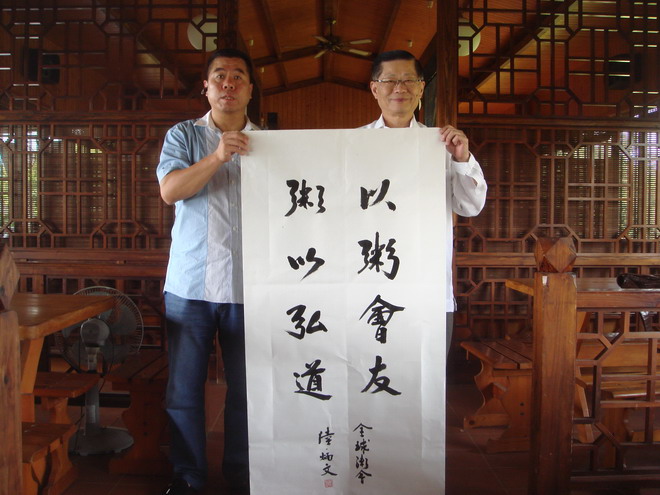 以粥會友
粥以弘道
全球粥會
陸炳文